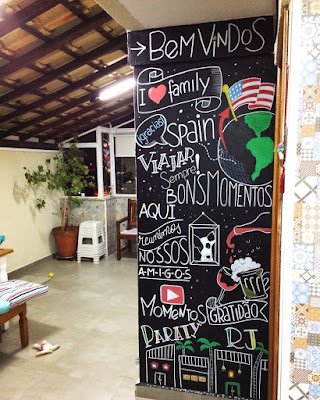 → BEM VINDOS
I ♥ family
gracias
Spain
VIAJAR
Sempre!
BONS MOMENTOS
AQUI
reunimos
NOSSOS
A-M-I-G-O-S
MOMENTOS
GRATIDÃO
PARATY RJ